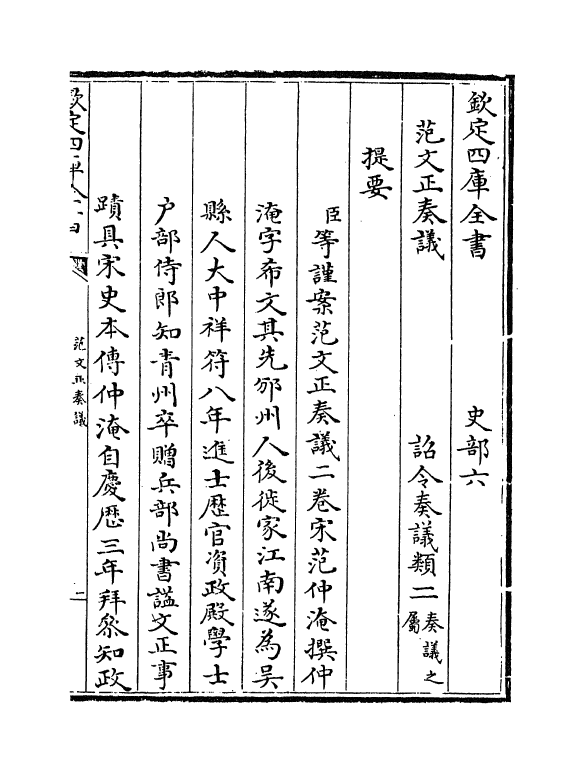 欽定四庫全書　史部六
范文正奏議　詔令奏議類二奏議之屬
提要
臣等謹案范文正奏議二卷宋范仲淹撰仲
淹字希文其先邠州人後徙家江南遂為吳
縣人大中祥符八年進士歴官資政殿學士
户部侍郎知青州卒贈兵部尚書諡文正事
蹟具宋史本傳仲淹自慶歴三年拜叅知政
欽定四庫全書
范文正奏議